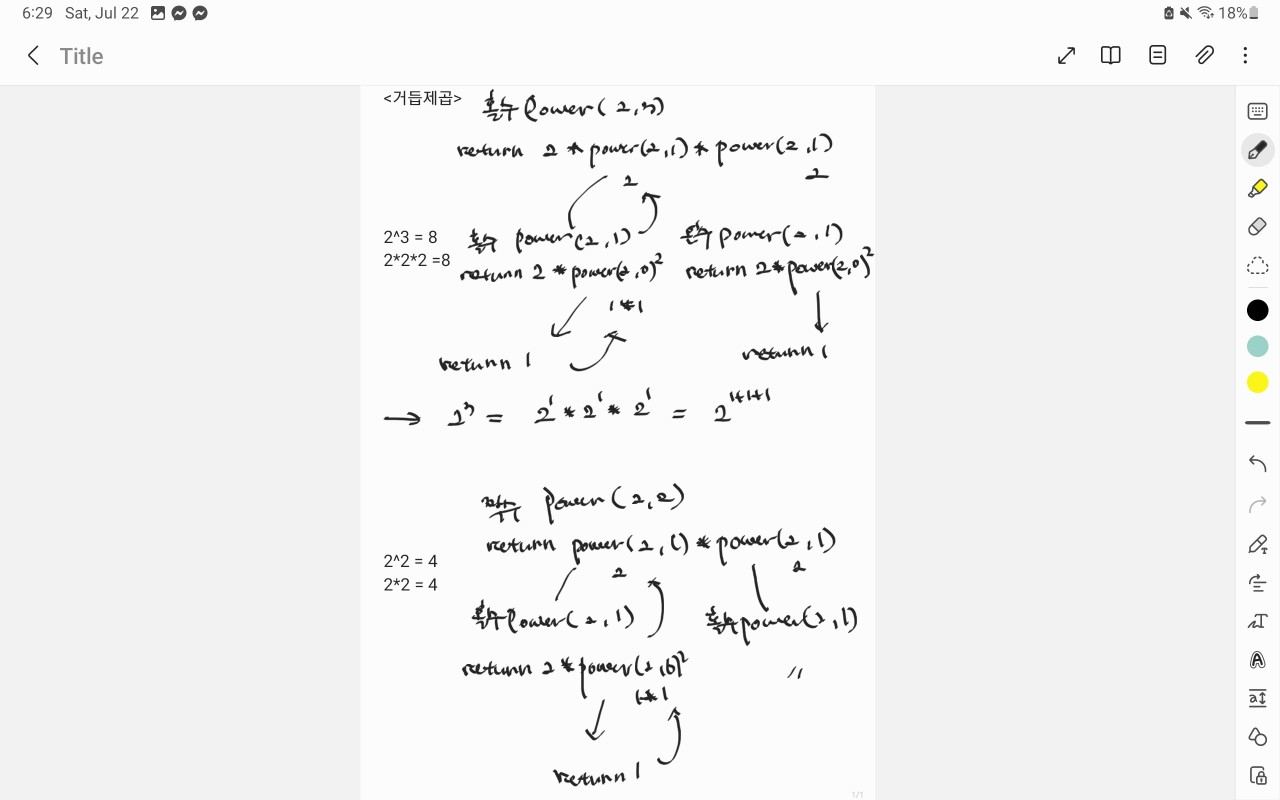 6:29 Sat, Jul 22 18%
Title
<거듭제곱> 홀수 power(2,3)
return 2 * power(2,1) * power(2,1)
2 2
2^3 = 8
2*2*2 =8
홀수 power(2,1) 홀수 power(2,1)
return 2 * power(2,0)² return 2*power(2,0)²
1*1
return 1 return 1
→ 2³ = 2¹ * 2¹ * 2¹ = 2¹⁺¹⁺¹
짝수 power(2,2)
return power(2,1) * power(2,1)
2 2
2^2 = 4
2*2 = 4
홀수 power(2,1) 홀수 power(2,1)
return 2 * power(2,0)² 〃
1*1
return 1
1/1